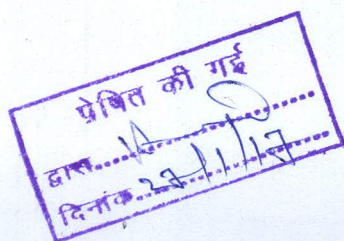 प्रेषित की गई
द्वारा..........
दिनांक 27/1/17